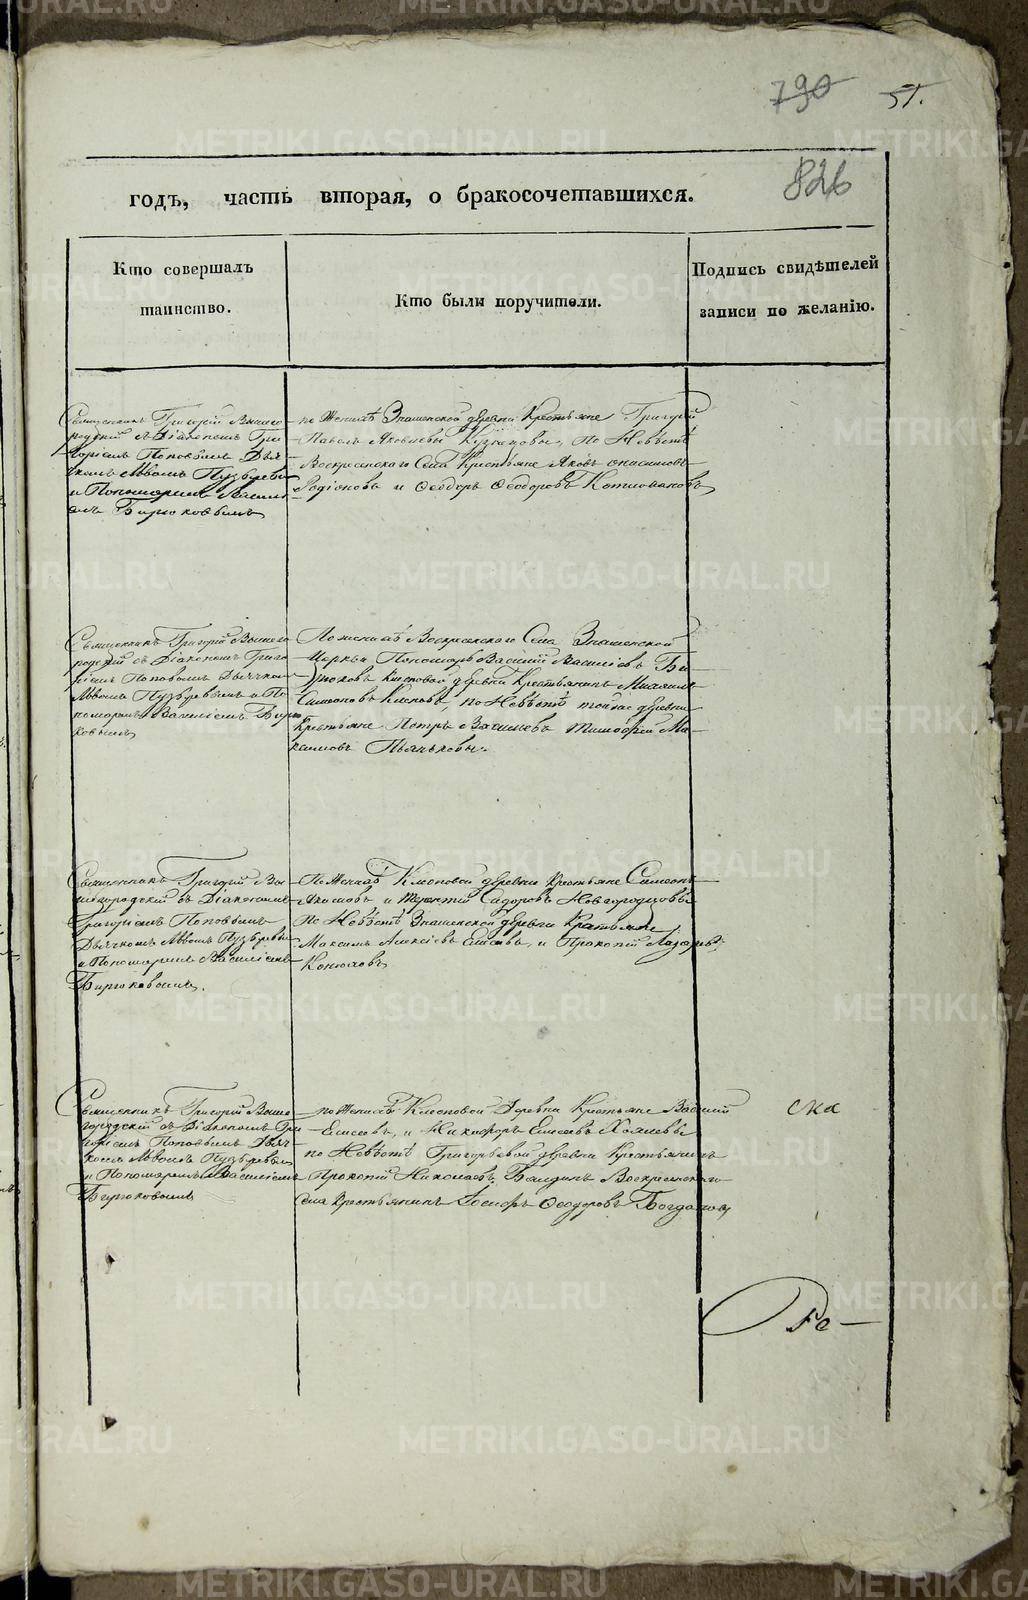 790 51.
826
годъ, часть вторая, о бракосочетавшихся.
Кто совершалъ
таинство.
Кто были поручители.
Подпись свидѣтелей
записи по желанію.
Священникъ Григорій Вышего
родскій съ Діакономъ Гри
горіемъ Поповымъ Дьяч
комъ Львомъ Пузыревы
и Пономаремъ Василі
емъ Бирюковымъ
по Женихѣ Знаменской деревни Крестьяне Григорій
Павелъ Яковлевы Кузнецовы, По Невѣстѣ
Воскресенскаго Села Крестьяне Яковъ
Родіоновъ и Ѳеодоръ Ѳеодоровъ
Священникъ Григорій Вышего
родскій съ Діакономъ Григо
ріемъ Поповымъ Дьячком
Львомъ Пузыревымъ и По
номаремъ Василіемъ Бирю
ковымъ
По женихѣ Воскресенскаго Села Знаменской
Церкви Пономарь Василій Васильевъ Би
рюковъ Клеповой деревни Крестьянинъ Михаилъ
Симеоновъ Клеповъ, по Невѣстѣ той же деревни
Крестьяне Петръ Васильевъ Тимоѳей Ма
ксимовъ Пьянковы.
Священникъ Григорій Вы
шегородскій съ Діакономъ
Григоріемъ Поповымъ
Дьячкомъ Львомъ Пузыревы
и Пономаремъ Василіемъ
Бирюковымъ.
По Женихѣ Клеповой деревни Крестьяне Симеонъ
Акимовъ и Терентій Сидоровъ Новгородцовы
По Невѣстѣ Знаменской деревни Крестьяне
Максимъ Алексѣевъ и Прокопій Лазарев
Конюховъ
Священникъ Григорій Выше
городскій съ Діакономъ Гри
горіемъ Поповымъ Дьяч
комъ Львомъ Пузыревымъ
и Пономаремъ Василіемъ
Бирюковымъ
по Женихѣ Клеповой Деревни Крестьяне Василій
Елисеевъ, и Никифоръ Елисеевъ
по Невѣстѣ Григорьевой деревни Крестьянинъ
Прокопій Николаевъ Воскресенскаго
Села Крестьянинъ Ѳеодоровъ Богдановъ
METRIKI.GASO-URAL.RU